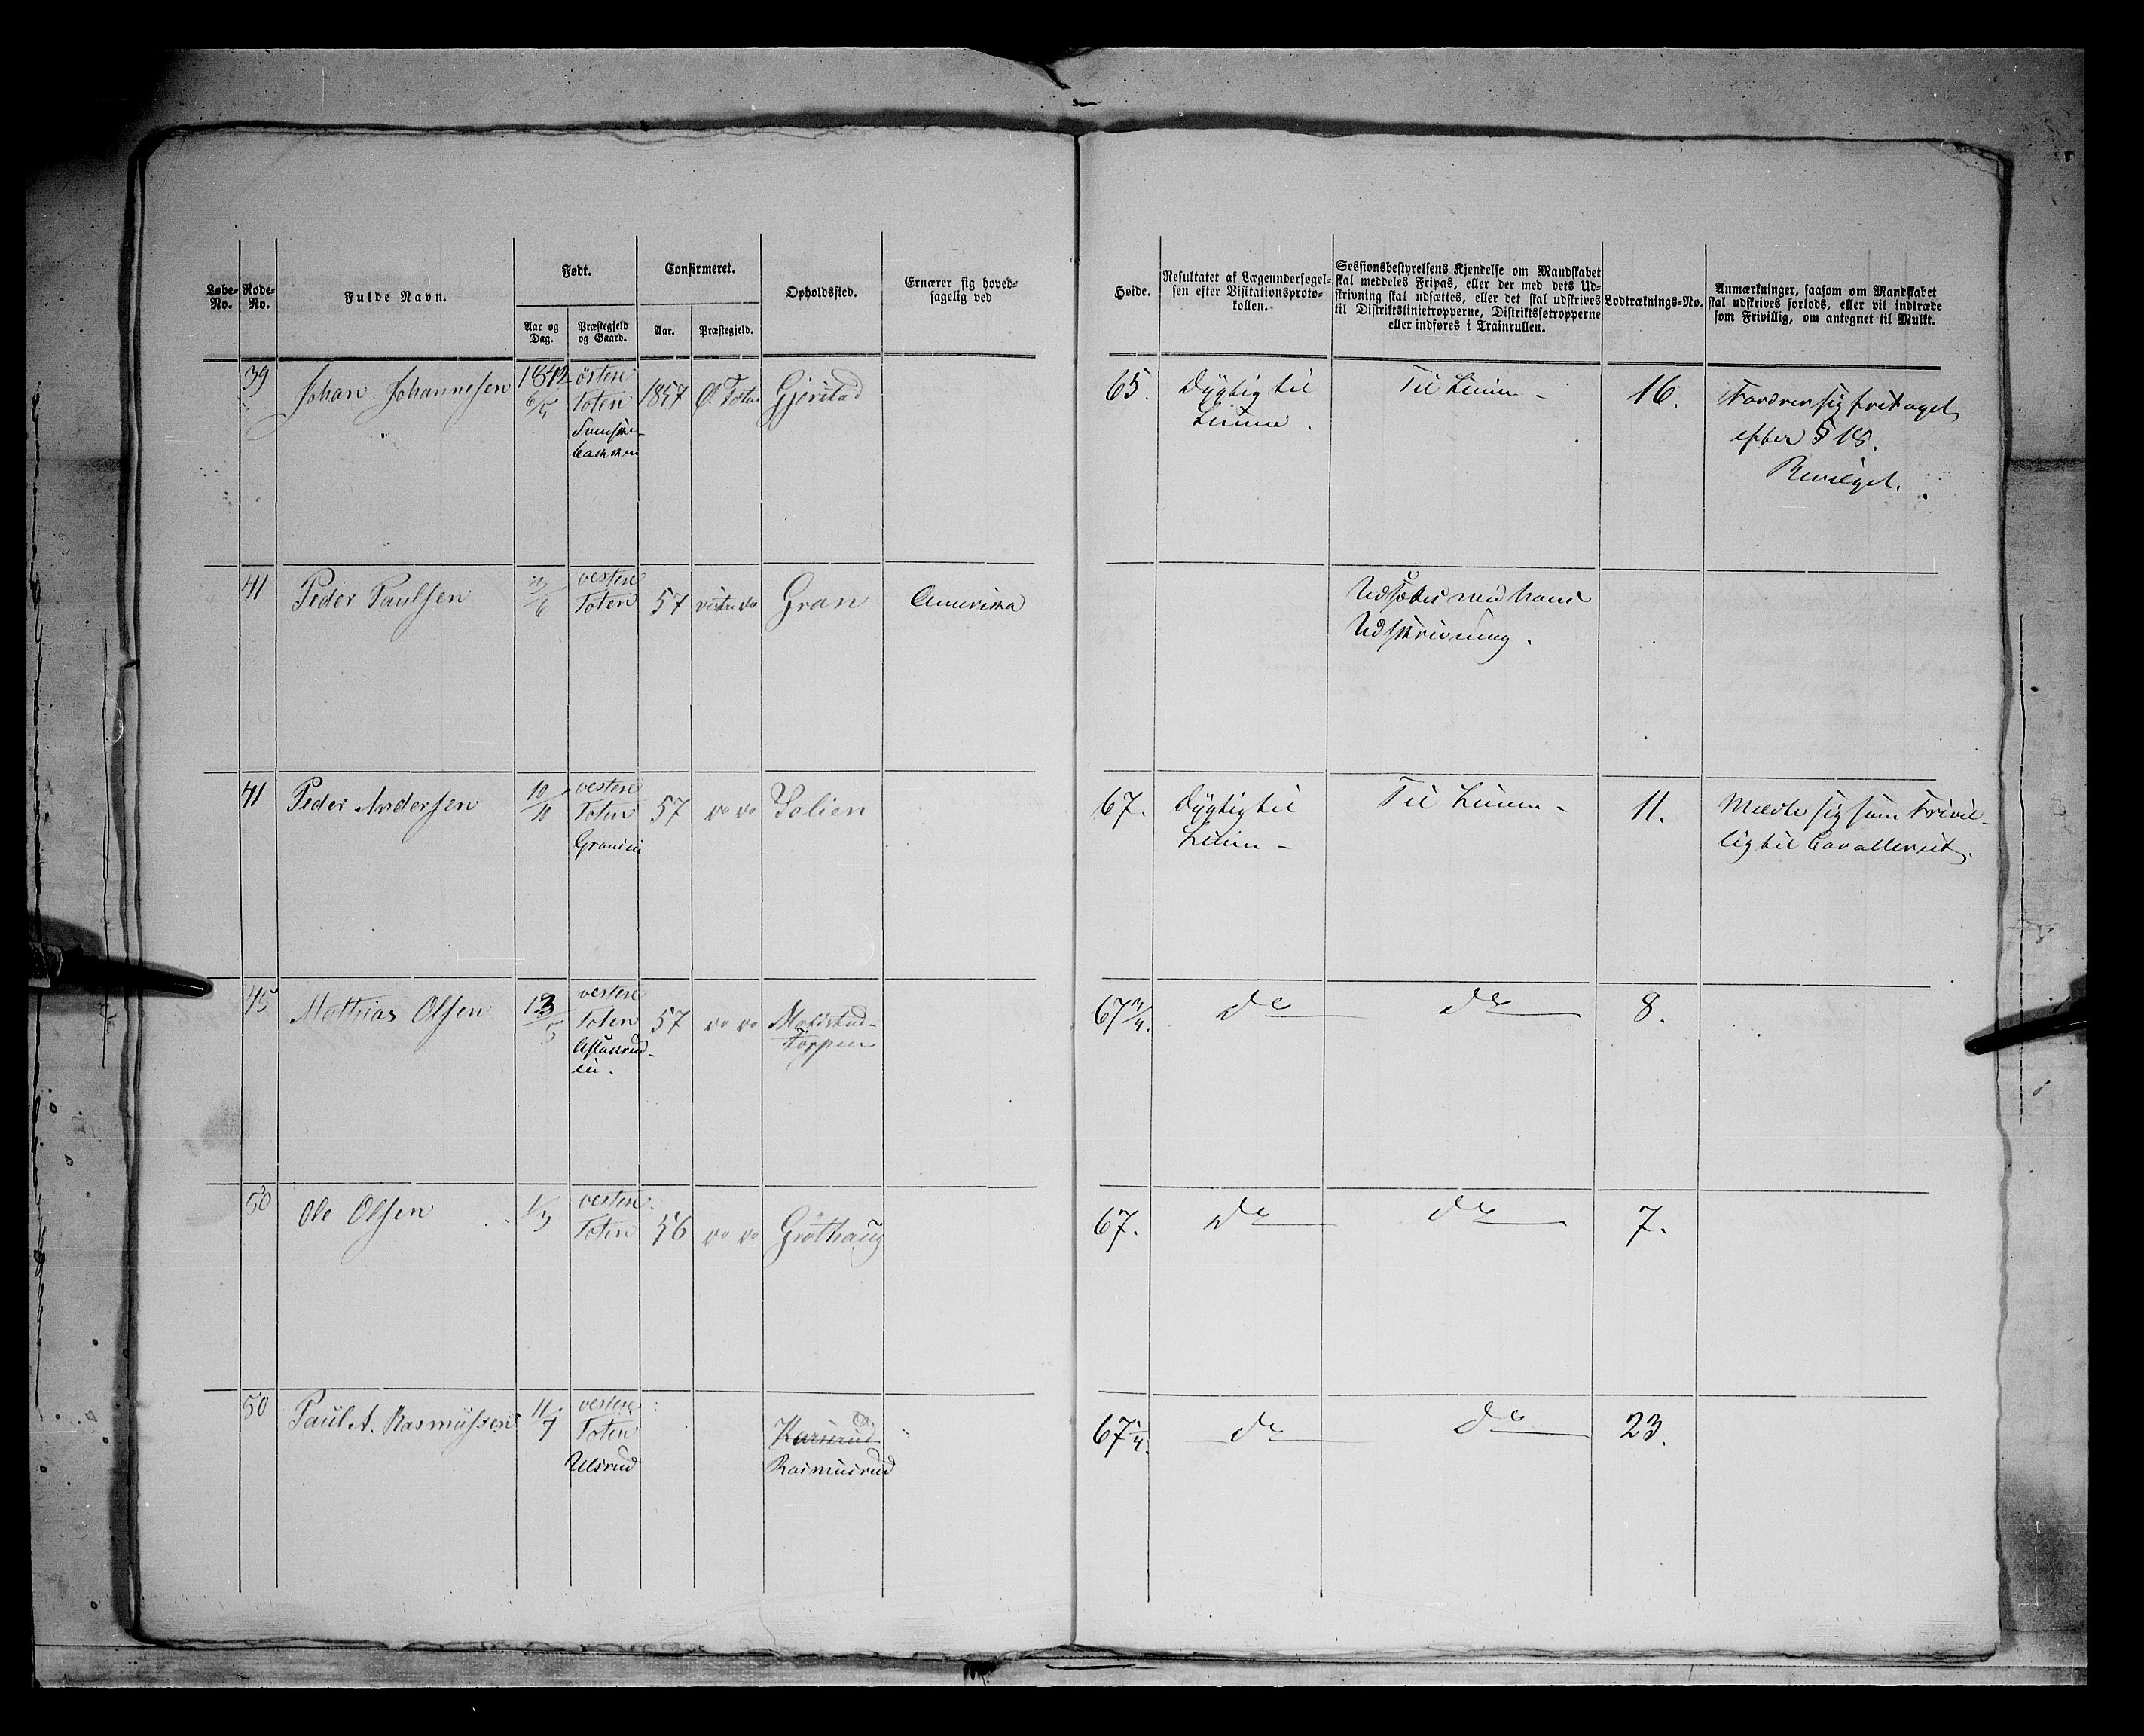 Løbe-No.
Rode-No.
Fulde Navn.
Født.
Aar og Dag.
Præstegjeld og Gaard.
Confirmeret.
Aar.
Præstegjeld.
Opholdssted.
Ernærer sig hoved-
sagelig ved
Høide.
Resultatet af Lægeundersøgel-
sen efter Visitationsproto-
kollen.
Sessionsbestyrelsens Kjendelse om Mandskabet
skal meddeles Fripas, eller der med dets Ud-
skrivning skal udsættes, eller det skal udskrives
til Distriktslinietropperne, Distriktsfotropperne
eller indføres i Trainrullen.
Lodtræknings-No.
Anmærkninger, saasom om Mandskabet
skal udskrives forlods, eller vil indtræde
som Frivillig, om antegnet til Mulkt.
39 Johan Johannesen 1842 östere 1857 Ö. Toten Gjerstad 65. Dygtig til Til Linien 16. Fordrer sig fritaget
6/5 Toten Linien. efter § 18.
Bevilget.
41 Peder Paulsen vestere Toten 57 vestre do Gran Amerika Udsættes med hans
Udskrivning.
41 Peder Andersen 10/11 vestere Toten 57 do do Solien 67. Dygtig til Til Linien 11. Meldte sig som Frivil-
Linien lig til Cavalleriet.
45 Mathias Olsen 13/5 vestere Toten 57 do do 67 3/4. do do 8.
50 Ole Olsen 1/3 vestere Toten 56 do do Gröthaug 67. do do 7.
50 Paul A. Rasmussen 11/7 vestere Karserud 67 1/4. do do 23.
Toten
Ulsrud Rasmusrud